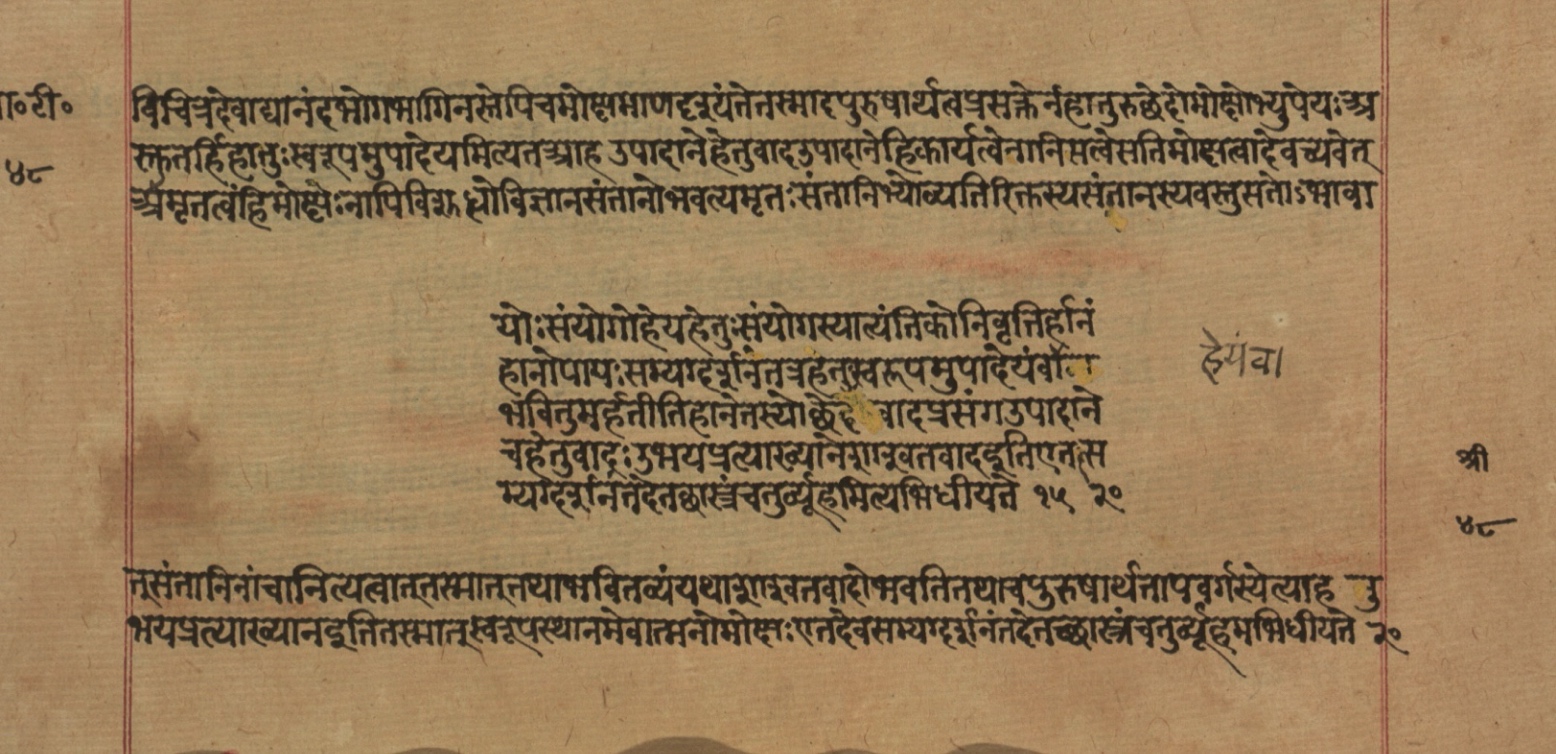 पा॰टी॰
४८
विचित्रदेवाद्यानंदभोगभागिनस्तेपिचमोक्षमाणदृश्यंतेतस्मादपुरुषार्थत्वप्रसक्तेर्नहातुरुछेदोमोक्षोभ्युपेयःअ
स्कतर्हिहातुःस्वरूपमुपादेयमित्यतआह उपादानेहेतुवादउपादानेहिकार्यत्वेनानिसत्वेसतिमोक्षत्वादेवच्यवेत्
अमृतत्वंहिमोक्षःनापिविशुद्धोविज्ञानसंतानोभवत्यमृतःसंतानिभ्योव्यतिरिक्तस्यसंतानस्यवस्तुसतोऽभावा
योःसंयोगोहेयहेतुःसंयोगस्यात्यंतिकोनिवृत्तिर्हानं
हानोपायःसम्यग्दर्शनंतत्रहेतुःस्वरूपमुपादेयंवा
हेयंवा
भवितुमर्हतीतिहानेतस्योछेदवादप्रसंगउपादाने
चहेतुवादःउभयप्रत्याख्यानेशाश्वतवादइतिएतत्स
म्यग्दर्शनंतदेतछास्त्रंचतुर्व्यूहमित्यभिधीयते १५ २०
श्री
४८
त्संतानिनांचानित्यत्वात्तस्मात्तथाभवितव्यंयथाशाश्वतवादोभवतितथाचपुरुषार्थतापवर्गस्येत्याह उ
भयप्रत्याख्यानइतितस्मात्स्वरूपस्थानमेवात्मनोमोक्षःएतदेवसम्यग्दर्शनंतदेतच्छास्त्रंचतुर्व्यूहमभिधीयते २०